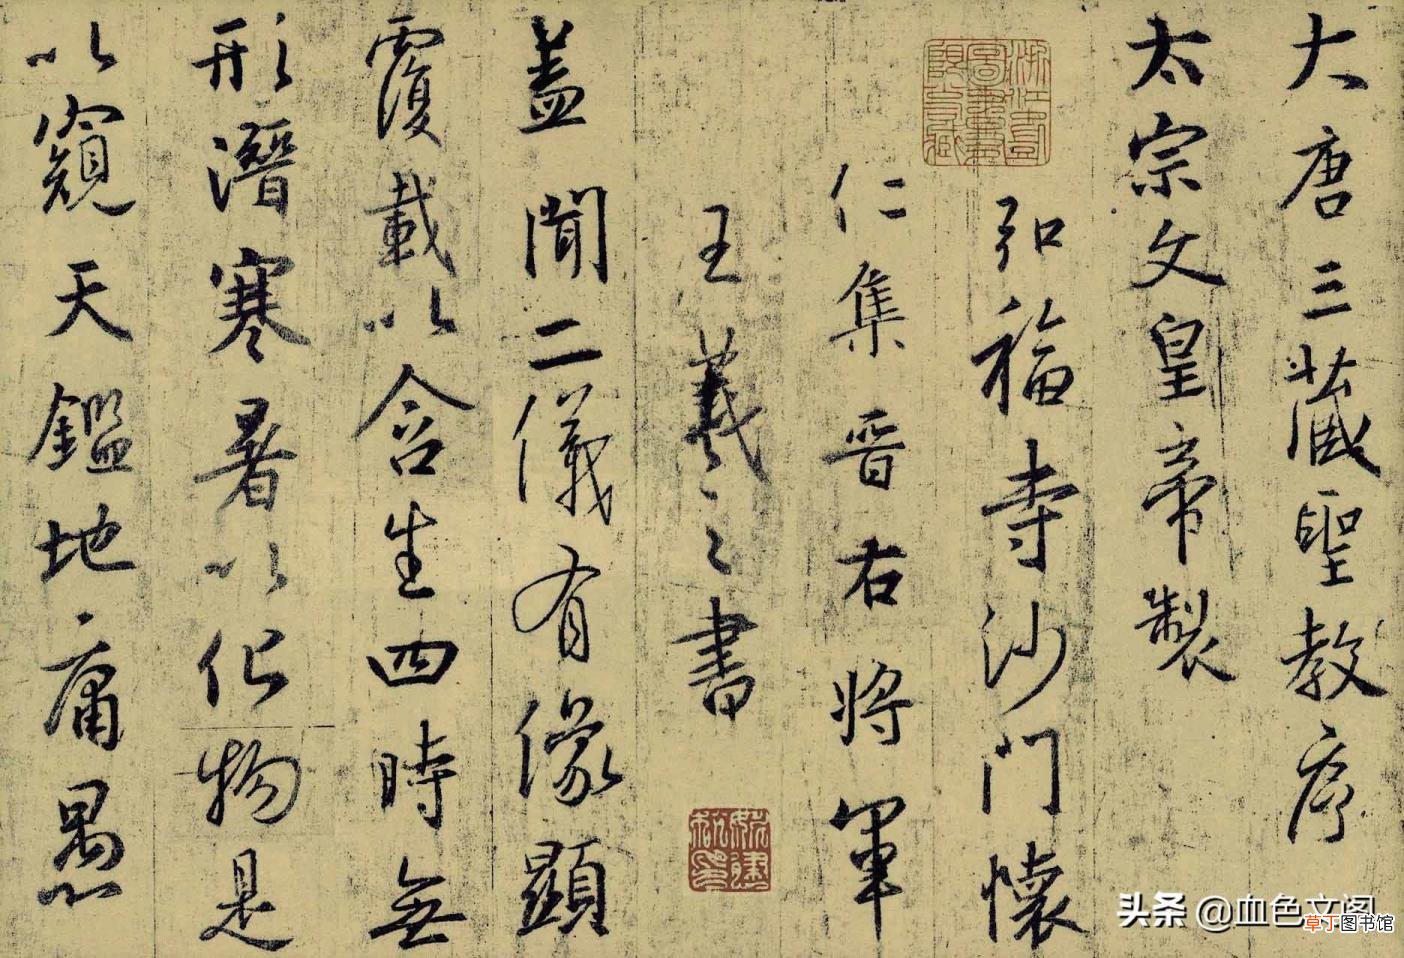 大唐三藏聖教序
太宗文皇帝製
弘福寺沙門懷
仁集晉右將軍
王羲之書
蓋聞二儀有像顯
覆載以含生四時無
形潛寒暑以化物是
以窺天鑑地庸愚
头条 @血色文阁
草丁图书馆